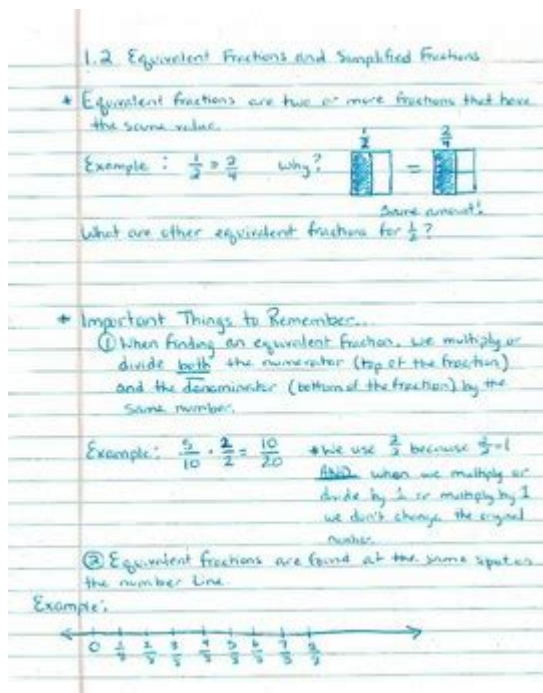 1.2 Equivalent Fractions and Simplified Fractions
* Equivalent fractions are two or more fractions that have
the same value.
Example: 1/2 = 2/4 Why? 1/2 = 2/4
Same amount!
What are other equivalent fractions for 1/2?
* Important Things to Remember...
① When finding an equivalent fraction, we multiply or
divide both the numerator (top of the fraction)
and the denominator (bottom of the fraction) by the
same number.
Example: 5/10 · 2/2 = 10/20 * We use 2/2 because 2/2 = 1
AND when we multiply or
divide by 1 or multiply by 1
we don't change the original
number.
② Equivalent fractions are found at the same spot on
the number line.
Example:
0